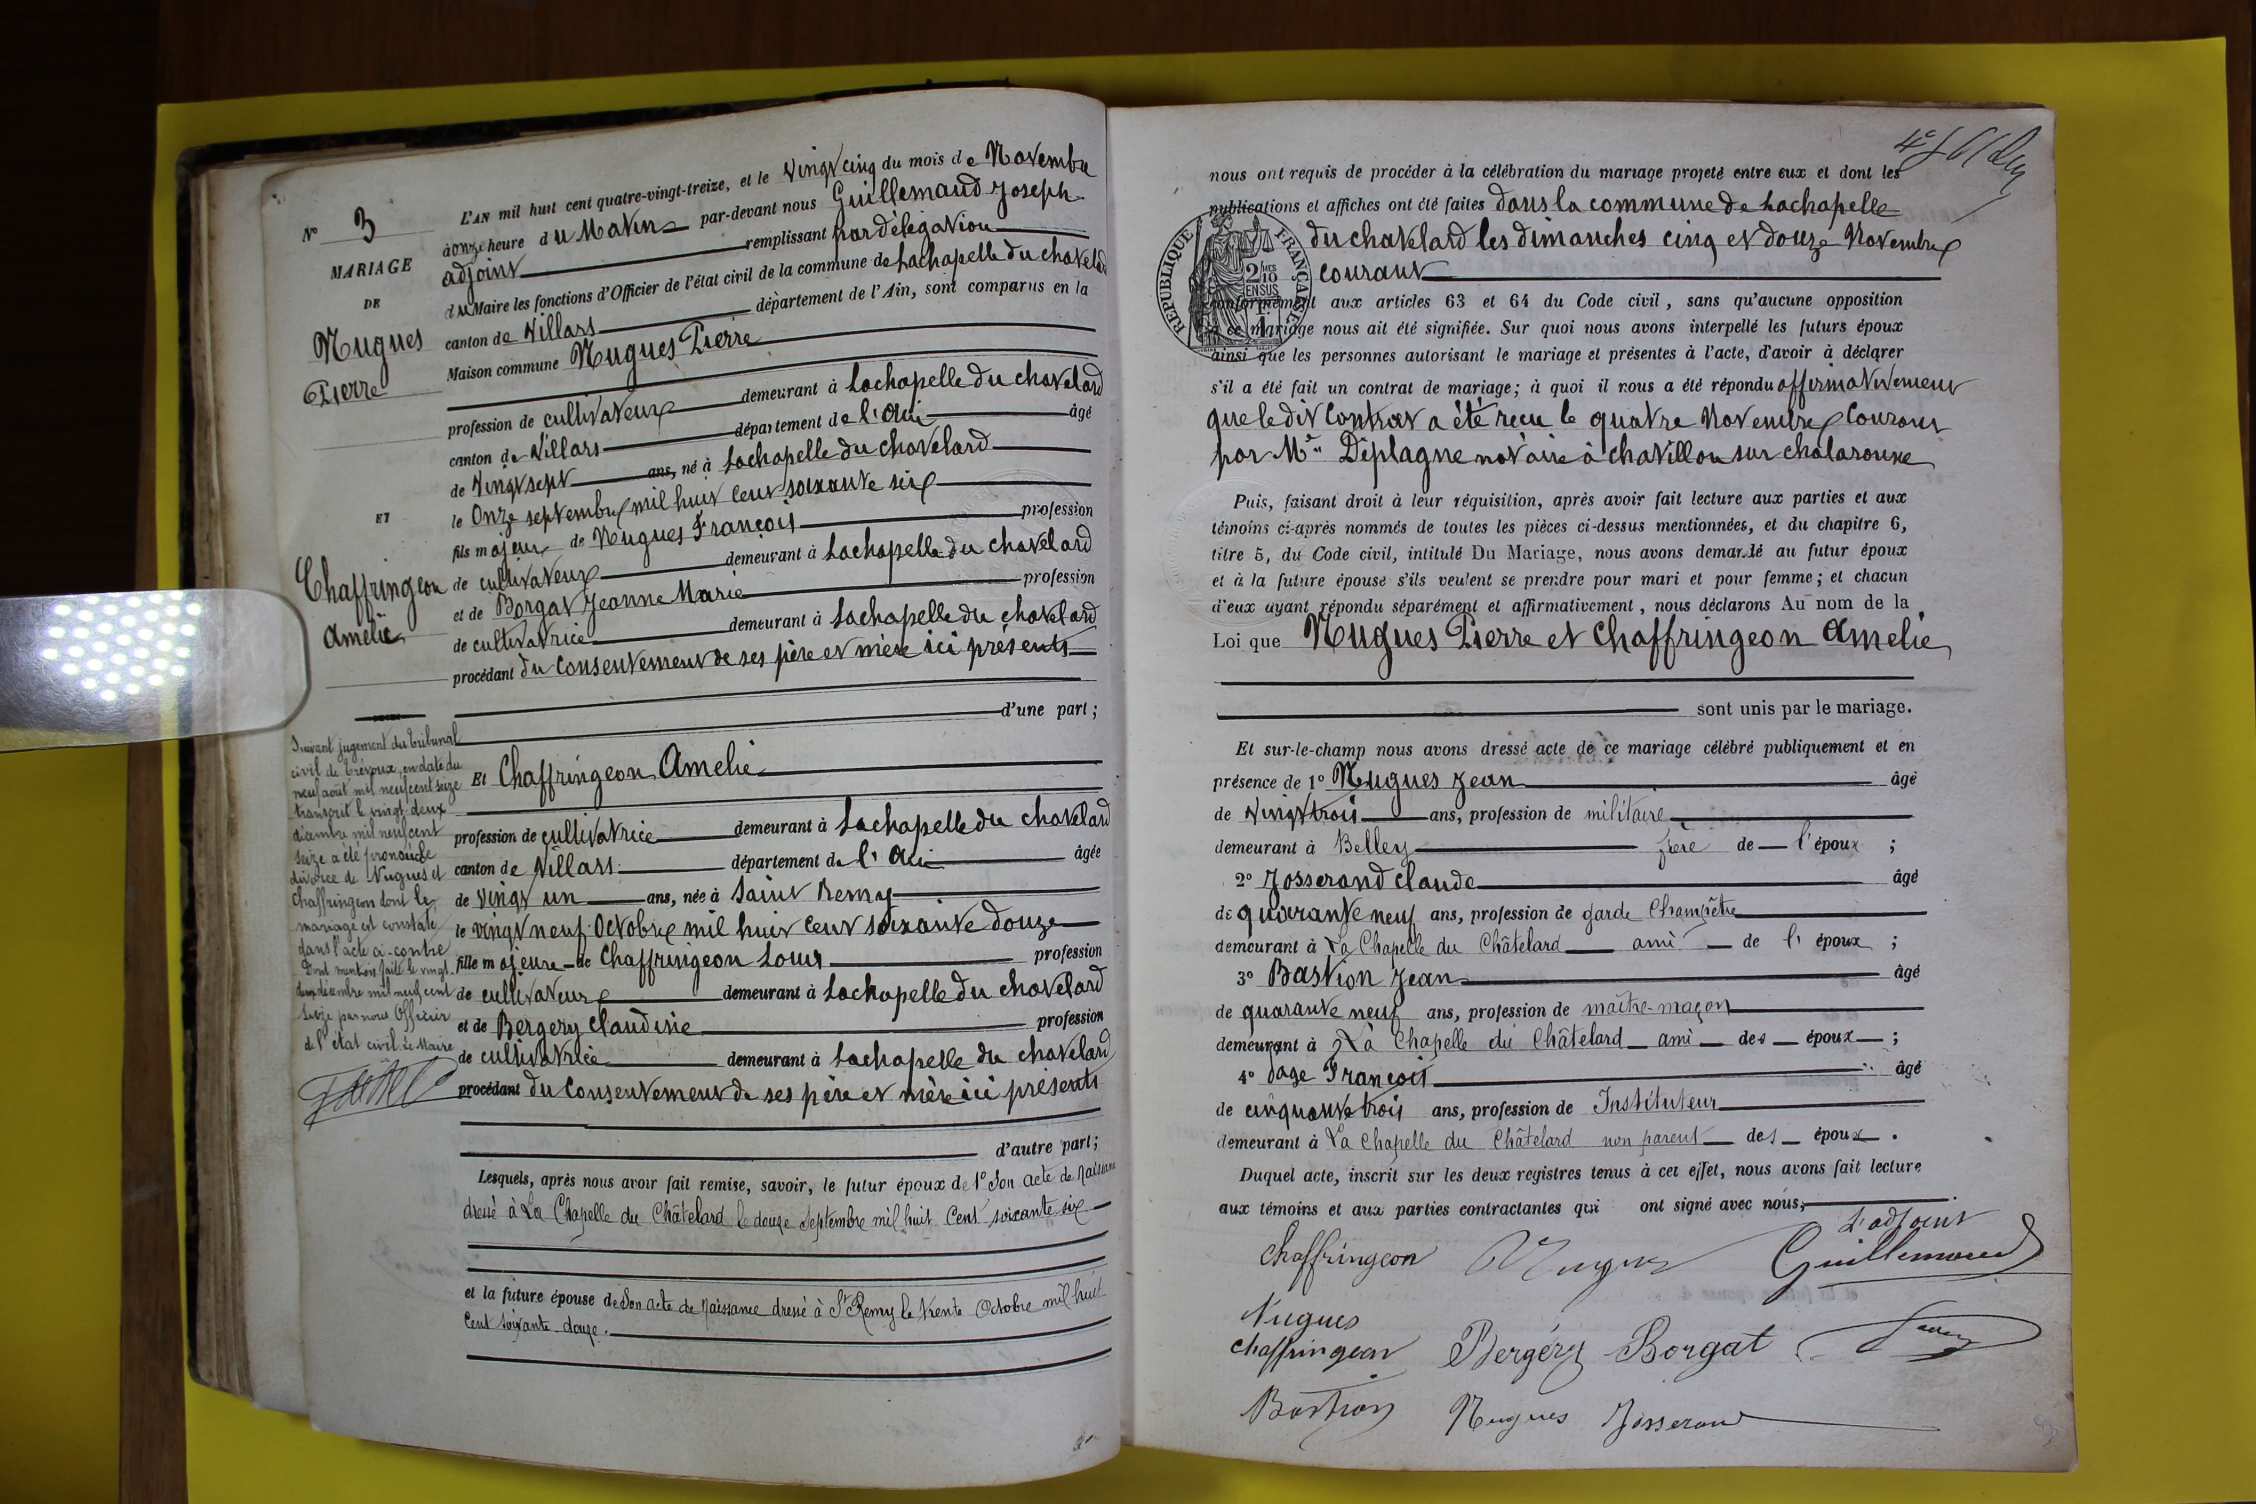 N° 3
MARIAGE
DE
Nugues
Pierre
ET
Chaffringeon
Amelie
Suivant jugement du tribunal
civil de Trévoux, en date du
neuf août mil neuf cent seize
transcrit le vingt-deux
décembre mil neuf cent
seize a été prononcé le
divorce de Nugues et
Chaffringeon dont le
mariage est constaté
dans l'acte ci-contre
Dont mention faite le vingt-
deux décembre mil neuf cent
seize par nous Officier
de l'état civil. Le Maire
L'AN mil huit cent quatre-vingt-treize, et le vingt cinq du mois de Novembre
à onze heure du Matin par-devant nous Guillemaud Joseph
adjoint remplissant par délégation
du Maire les fonctions d'Officier de l'état civil de la commune de Lachapelle du chatelard
canton de Villars département de l'Ain, sont comparus en la
Maison commune Nugues Pierre
profession de cultivateur demeurant à Lachapelle du chatelard
canton de Villars département de l'Ain âgé
de vingt sept ans, né à Lachapelle du chatelard
le Onze septembre mil huit cent soixante six
fils majeur de Nugues François profession
de cultivateur demeurant à Lachapelle du chatelard
et de Borgat Jeanne Marie profession
de cultivatrice demeurant à Lachapelle du chatelard
procédant du consentement de ses père et mère ici présents
d'une part ;
Et Chaffringeon Amelie
profession de cultivatrice demeurant à Lachapelle du chatelard
canton de Villars département de l'Ain âgée
de vingt un ans, née à Saint Remy
le vingt neuf Octobre mil huit cent soixante douze
fille majeure de Chaffringeon Louis profession
de cultivateur demeurant à Lachapelle du chatelard
et de Bergery Claudine profession
de cultivatrice demeurant à Lachapelle du chatelard
procédant du consentement de ses père et mère ici présents
d'autre part ;
Lesquels, après nous avoir fait remise, savoir, le futur époux de 1° Son acte de naissance
dressé à La Chapelle du Châtelard le douze Septembre mil huit cent soixante six
et la future épouse de Son acte de naissance dressé à St Remy le trente Octobre mil huit
cent soixante-douze.
nous ont requis de procéder à la célébration du mariage projeté entre eux et dont les
publications et affiches ont été faites dans la commune de Lachapelle
du chatelard les dimanches cinq et douze Novembre
courant
RÉPUBLIQUE FRANÇAISE
2/10 EN SUS
conformément aux articles 63 et 64 du Code civil, sans qu'aucune opposition
à ce mariage nous ait été signifiée. Sur quoi nous avons interpellé les futurs époux
ainsi que les personnes autorisant le mariage et présentes à l'acte, d'avoir à déclarer
s'il a été fait un contrat de mariage ; à quoi il nous a été répondu affirmativement
que le dit Contrat a été recu le quatre Novembre courant
par Me Déplagne notaire à chatillon sur chalaronne
Puis, faisant droit à leur réquisition, après avoir fait lecture aux parties et aux
témoins ci-après nommés de toutes les pièces ci-dessus mentionnées, et du chapitre 6,
titre 5, du Code civil, intitulé Du Mariage, nous avons demandé au futur époux
et à la future épouse s'ils veulent se prendre pour mari et pour femme ; et chacun
d'eux ayant répondu séparément et affirmativement, nous déclarons Au nom de la
Loi que Nugues Pierre et Chaffringeon Amelie
sont unis par le mariage.
Et sur-le-champ nous avons dressé acte de ce mariage célébré publiquement et en
présence de 1° Nugues Jean âgé
de vingt trois ans, profession de militaire
demeurant à Belley frère de l'époux ;
2° Josserand Claude âgé
de quarante neuf ans, profession de garde champêtre
demeurant à La Chapelle du Châtelard ami de l'époux ;
3° Bastion Jean âgé
de quarante neuf ans, profession de maître-maçon
demeurant à La Chapelle du Châtelard ami des époux ;
4° François âgé
de cinquante trois ans, profession de Instituteur
demeurant à La Chapelle du Châtelard non parent des époux.
Duquel acte, inscrit sur les deux registres tenus à cet effet, nous avons fait lecture
aux témoins et aux parties contractantes qui ont signé avec nous,
L'adjoint
Chaffringeon Nugues Guillemaud
Nugues
Chaffringeon Bergéry Borgat
Bastion Nugues Josserand